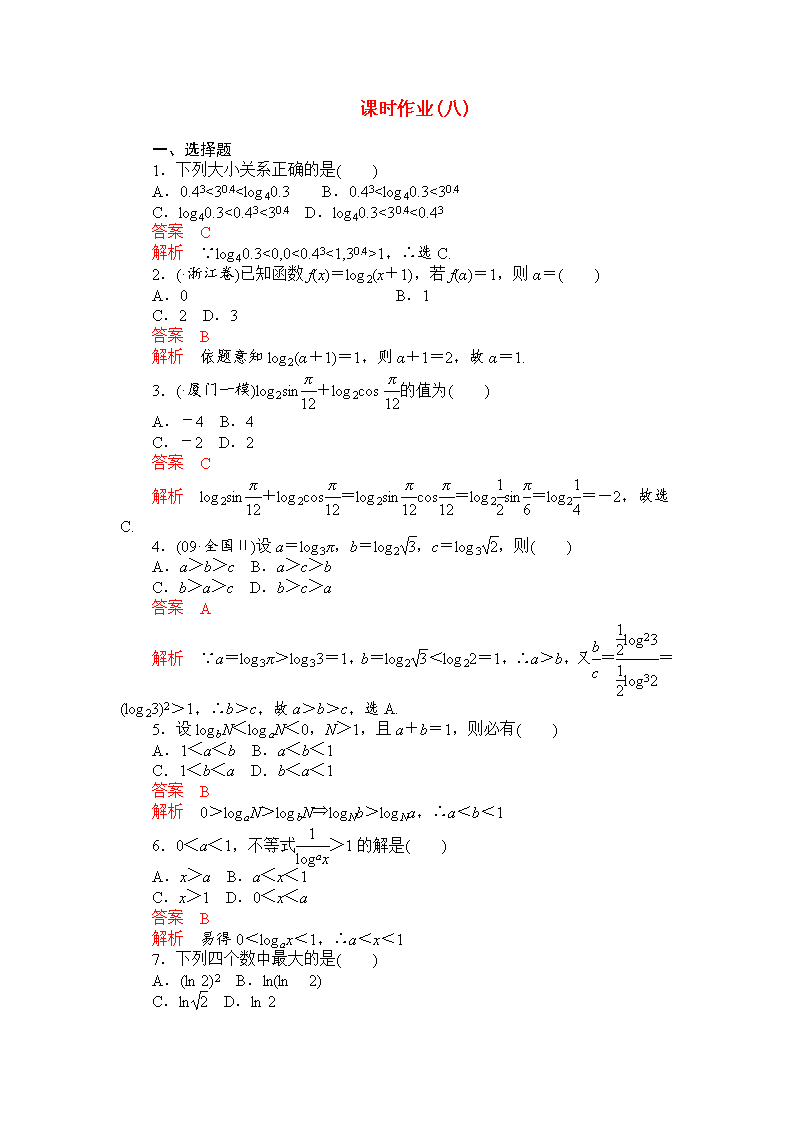 课时作业(八)
一、选择题
1．下列大小关系正确的是(　　)
A．0.4³<3^0.4<log₄0.3　　B．0.4³<log₄0.3<3^0.4
C．log₄0.3<0.4³<3^0.4　D．log₄0.3<3^0.4<0.4³
答案　C
解析　∵log₄0.3<0,0<0.4³<1,3^0.4>1，∴选 C.
2．(·浙江卷)已知函数 f(x)＝log₂(x＋1)，若 f(α)＝1，则 α＝(　　)
A．0　　　　　　　　　　B．1
C．2　D．3
答案　B
解析　依题意知 log₂(α＋1)＝1，则 α＋1＝2，故 α＝1.
3．(·厦门一模)log₂sin π/12＋log₂cos π/12的值为(　　)
A．－4　B．4
C．－2　D．2
答案　C
解析　log₂sin π/12＋log₂cos π/12＝log₂sin π/12 cos π/12＝log₂ 1/2 sin π/6＝log₂ 1/4＝－2，故选
C.
4．(09·全国Ⅱ)设 a＝log₃π，b＝log₂√3，c＝log₃√2，则(　　)
A．a＞b＞c　B．a＞c＞b
C．b＞a＞c　D．b＞c＞a
答案　A
解析　∵a＝log₃π＞log₃3＝1，b＝log₂√3＜log₂2＝1，∴a＞b，又b/c＝(1/2 log²3)/(1/2 log³2)＝
(log₂3)²＞1，∴b＞c，故 a＞b＞c，选 A.
5．设 log_bN＜log_aN＜0，N＞1，且 a＋b＝1，则必有(　　)
A．1＜a＜b　B．a＜b＜1
C．1＜b＜a　D．b＜a＜1
答案　B
解析　0＞log_aN＞log_bN⇒log_Nb＞log_Na，∴a＜b＜1
6．0＜a＜1，不等式1/(logᵃx)＞1 的解是(　　)
A．x＞a　B．a＜x＜1
C．x＞1　D．0＜x＜a
答案　B
解析　易得 0＜log_ax＜1，∴a＜x＜1
7．下列四个数中最大的是(　　)
A．(ln 2)²　B．ln(ln　2)
C．ln√2　D．ln 2